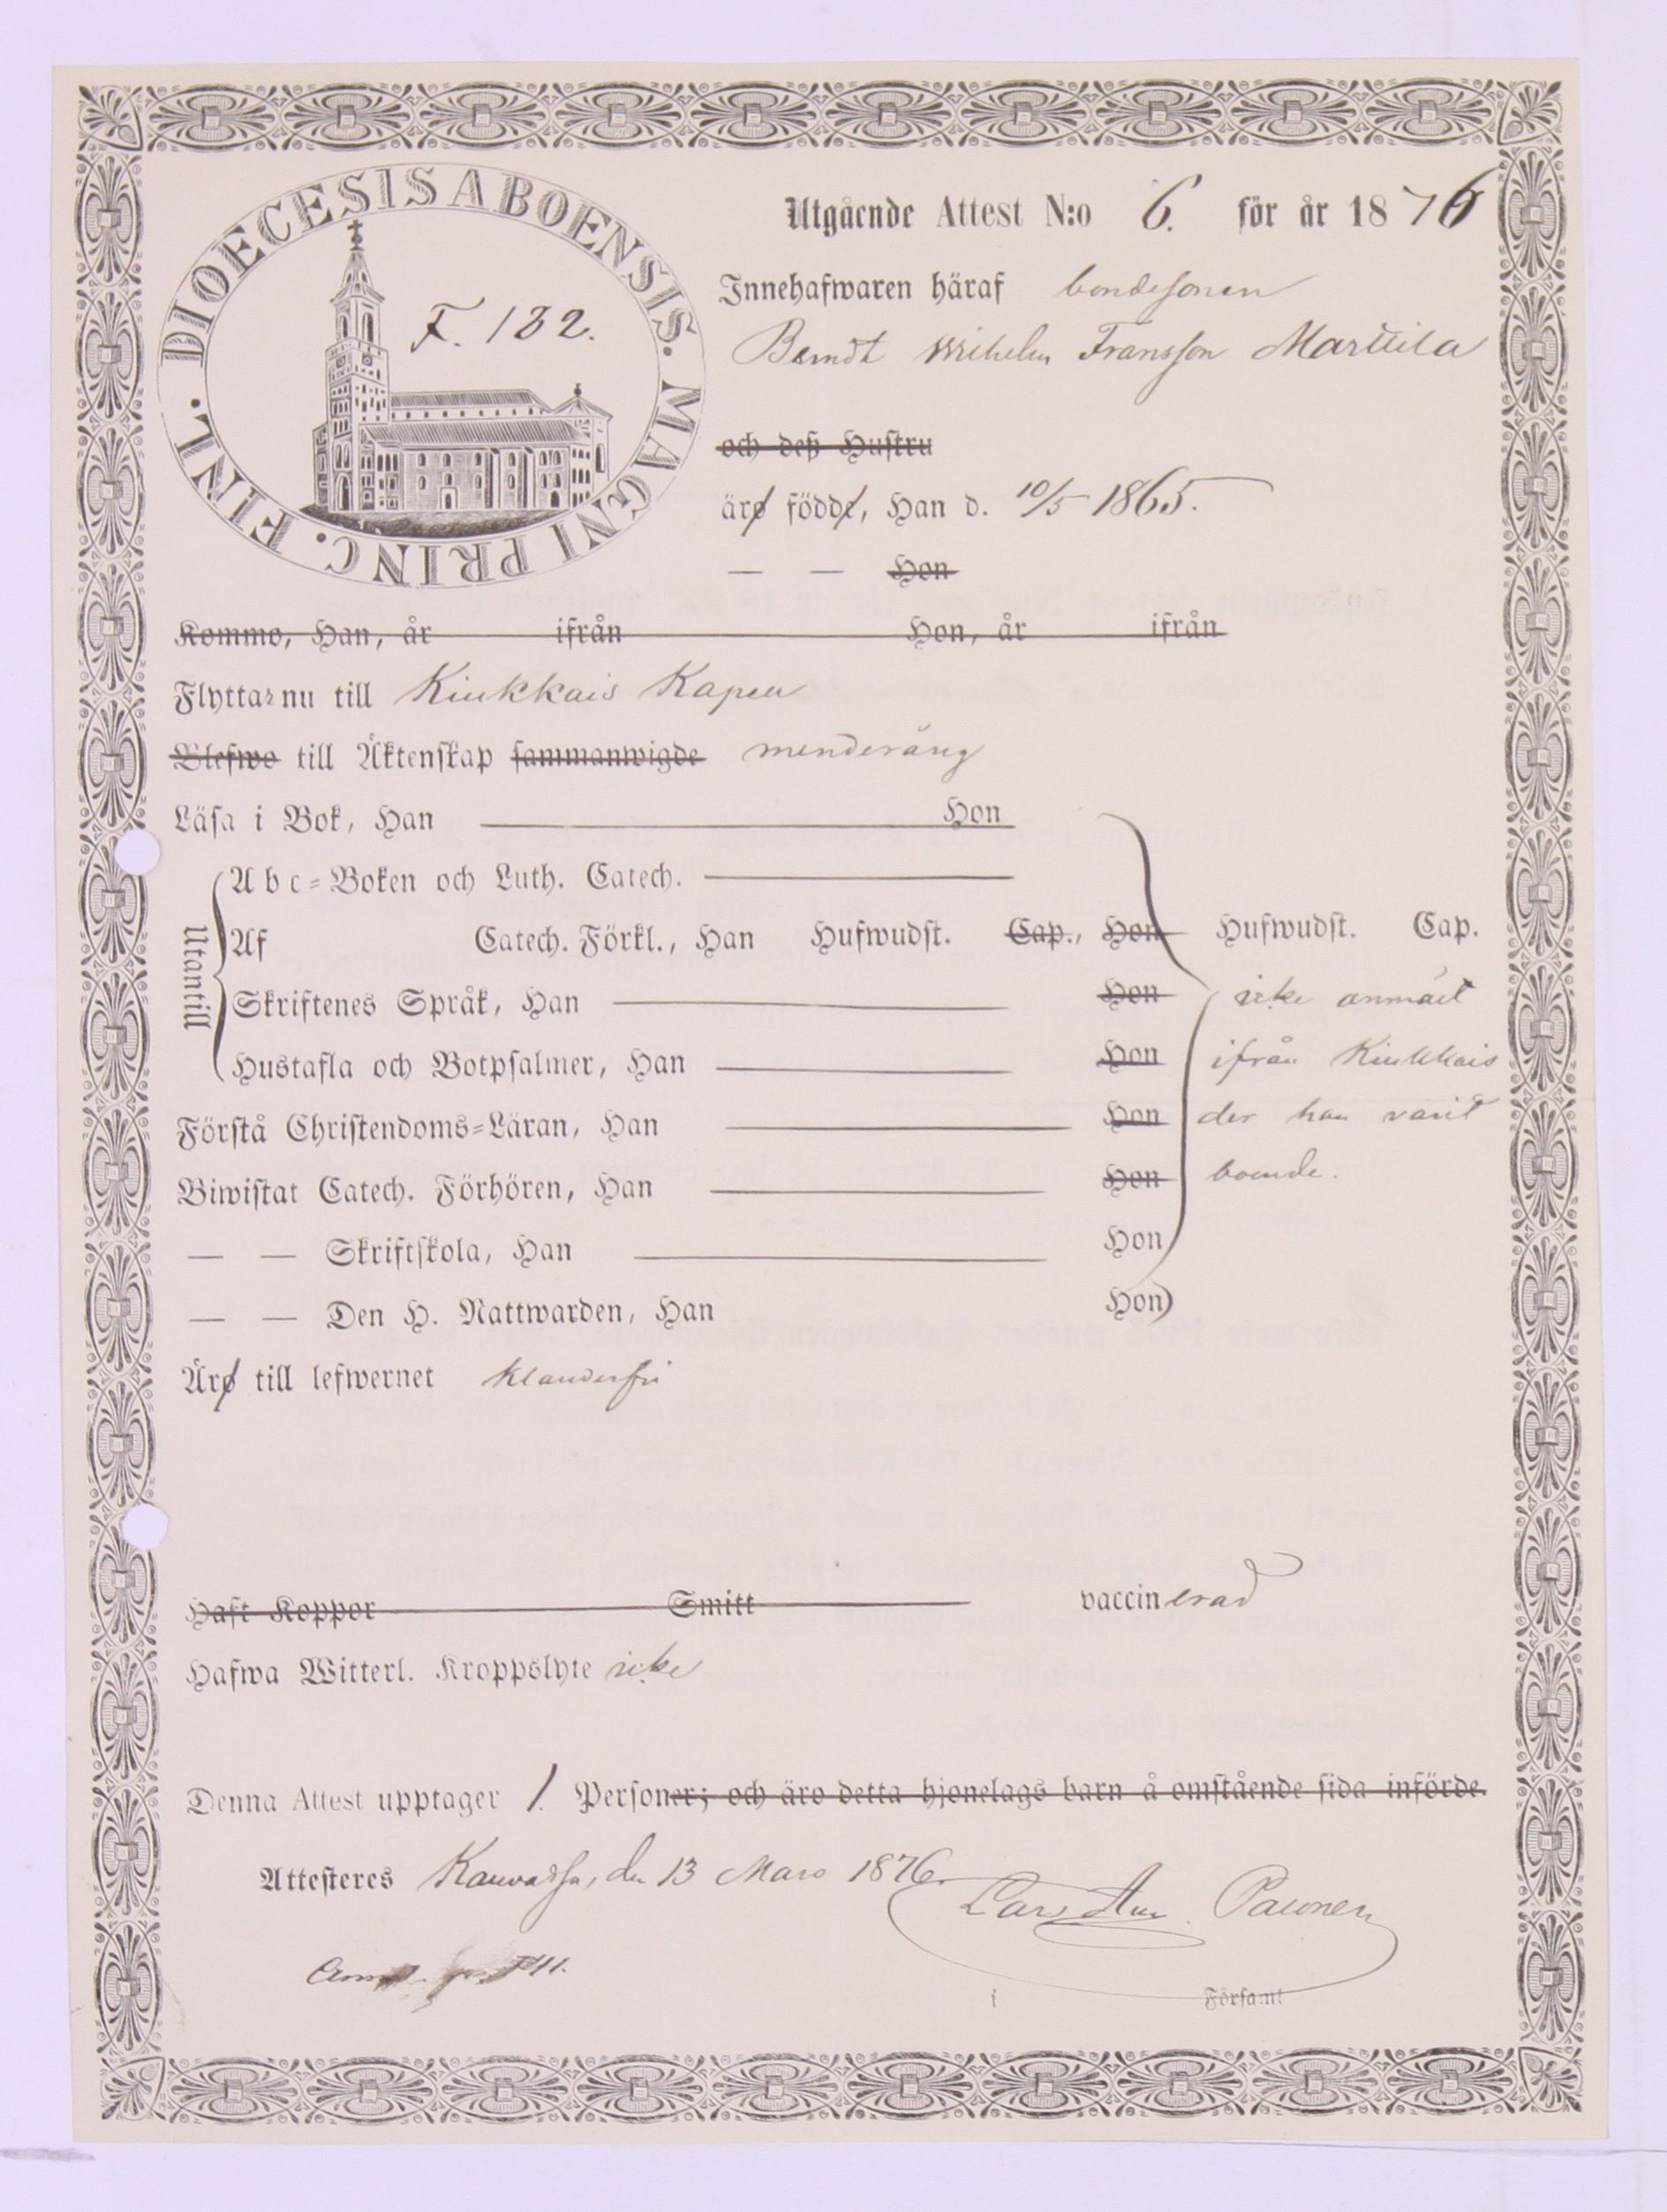 DIOECESIS ABOENSIS. MAGNI PRINC. FINL.
F. 182.
Utgående Attest N:o 6. för år 1876
Innehafwaren häraf bondesonen
Berndt Wilhelm Fransson Marttila
och deß Hustru
äro födde, Han d. 10/5 1865.
— — Hon
Kommo, Han, år ifrån Hon, år ifrån
Flyttar nu till Kiukkais Kapell
Blefwo till Äktenskap sammanwigde minderårig
Läsa i Bok, Han Hon
Utantill
Abc-Boken och Luth. Catech.
Af Catech. Förkl., Han Hufwudst. Cap., Hon Hufwudst. Cap.
Skriftenes Språk, Han Hon icke anmält
Hustafla och Botpsalmer, Han Hon ifrån Kiukkais
Förstå Christendoms-Läran, Han Hon der han varit
Biwistat Catech. Förhören, Han Hon boende.
— — Skriftskola, Han Hon
— — Den H. Nattwarden, Han Hon
Äro till lefwernet klanderfri
Haft Koppor Smitt vaccinerad
Hafwa Witterl. Kroppslyte icke
Denna Attest upptager 1. Personer; och äro detta hjonelags barn å omstående sida införde.
Attesteres Kauvatsa, den 13 Mars 1876.
Lars Aug. Paunen
i Församl